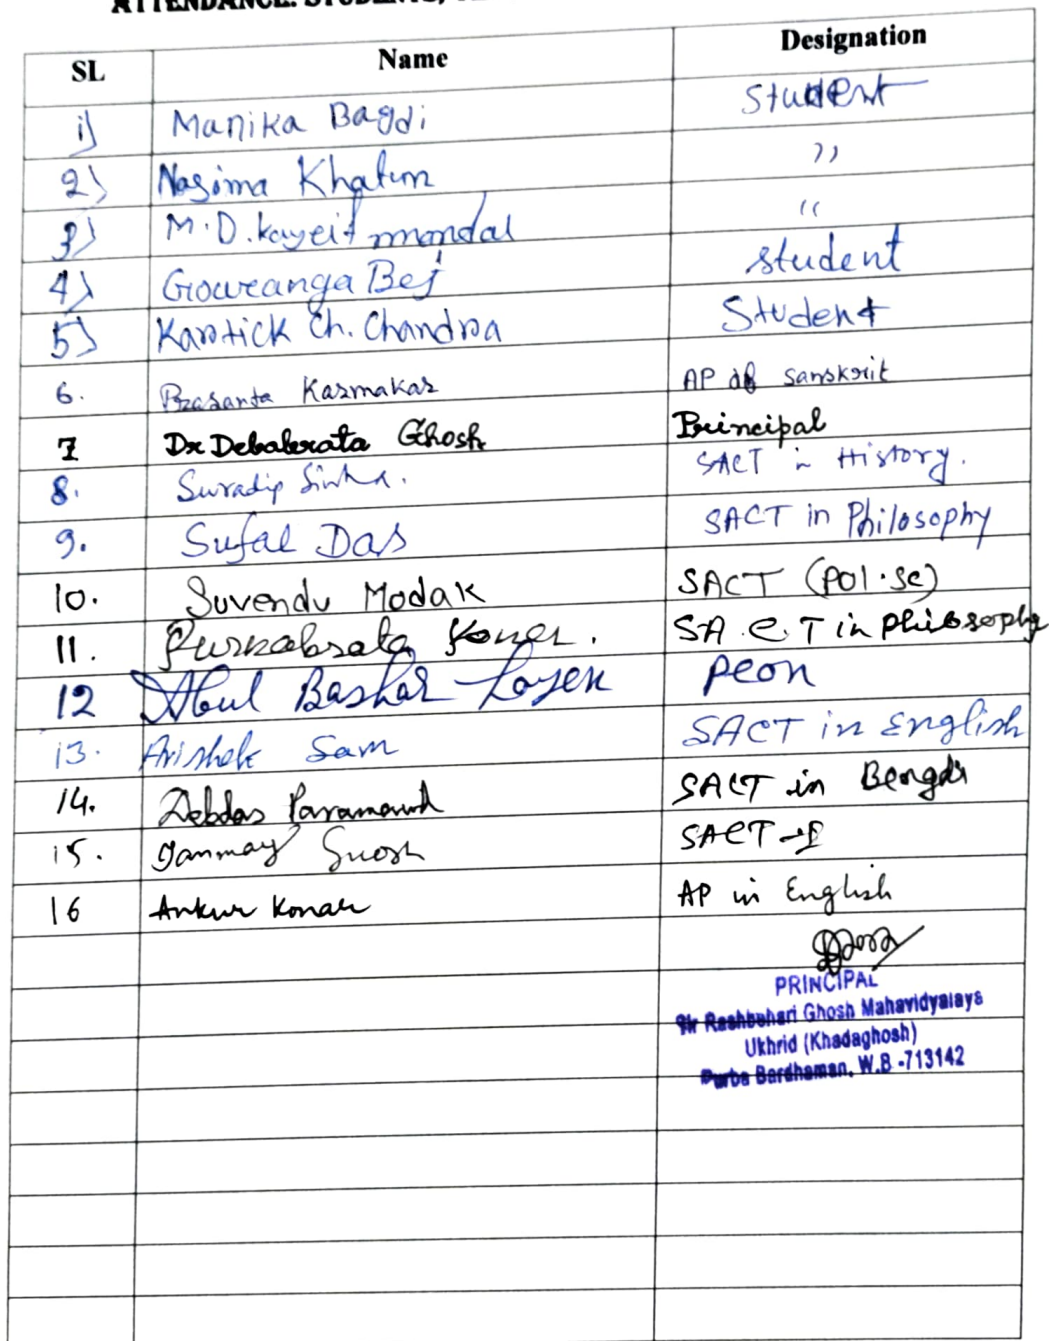 ATTENDANCE: STUDENTS,
SL Name Designation
1) Manika Bagdi Student
2) Nasima Khatun ,,
3) M.D. kayeif mondal “
4) Gouranga Bej student
5) Kartick Ch. Chandra Student
6. Prasanta Karmakar AP of Sanskrit
7 Dr Debabrata Ghosh Principal
8. Suradip Sinha. SACT in History.
9. Sufal Das SACT in Philosophy
10. Suvendu Modak SACT (Pol.Sc)
11. Purnabrata Koner. SA.C.T in philosophy
12 Abul Bashar Layek Peon
13. Avishek Sam SACT in English
14. Debdas Paramanik SACT in Bengali
15. Tanmay Ghosh SACT-I
16 Ankur Konar AP in English
PRINCIPAL
Sir Rashbehari Ghosh Mahavidyalaya
Ukhrid (Khadaghosh)
Purba Bardhaman, W.B -713142